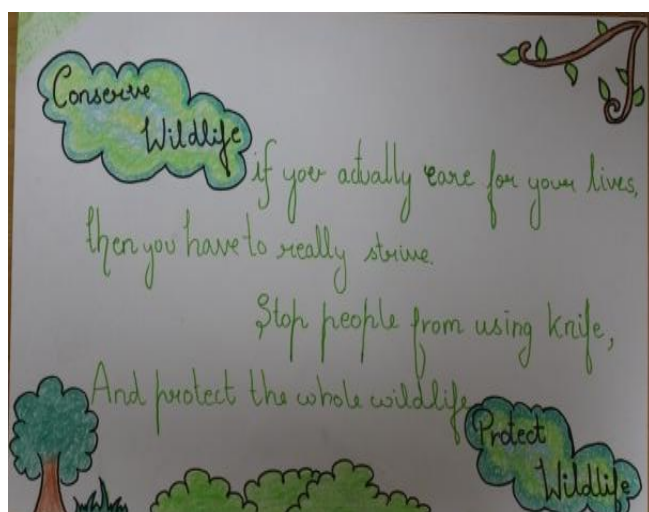 Conserve
Wildlife
if you actually care for your lives,
then you have to really strive.
Stop people from using knife,
And protect the whole wildlife
Protect
Wildlife